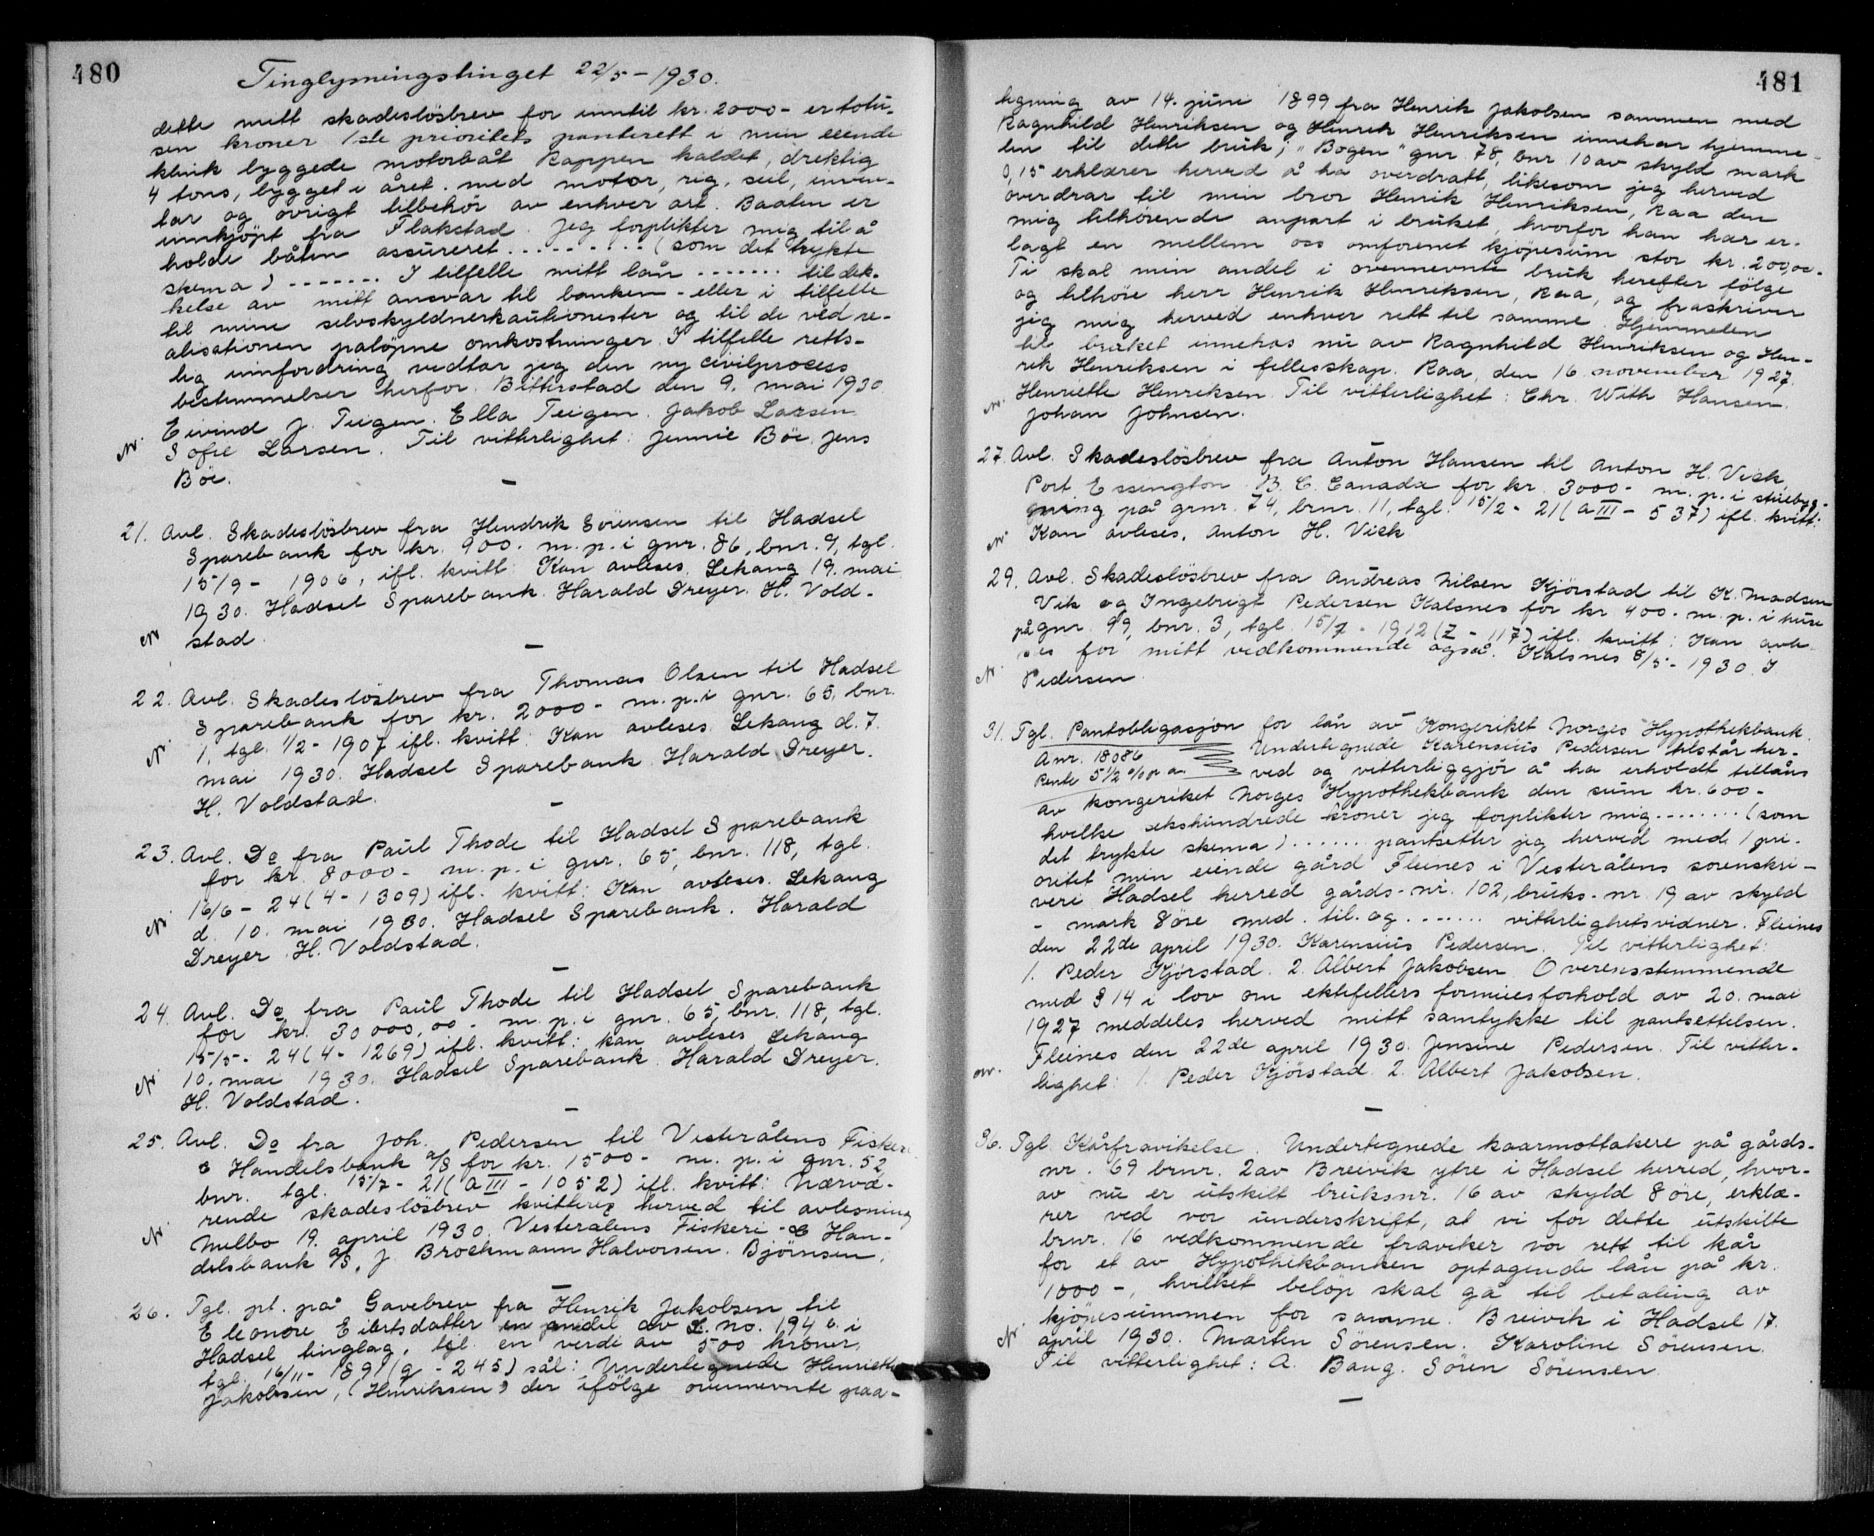 480
Tinglysningstinget 22/5-1930.
dette mitt skadeslösbrev for inntil kr. 2000- er totu-
sen kroner 1ste prioritets panterett i min eiende
klink byggede motorbåt Rappen kaldet, drektig
4 tons, bygget i året. med motor, rig, seil, inven-
tar og övrigt tilbehör av enhver art. Baaten er
innkjöpt fra Flakstad. Jeg forplikter mig til å
holde båten assureret......... (som det trykte
skema) ....... I tilfelle mitt lån ....... til dek-
kelse av mitt ansvar til banken - eller i tilfelle
til mine selvskyldnerkautionister og til de ved re-
alisationen palöpne omkostninger. I tilfelle retts-
lig innfordring vedtar jeg den ny civilprocess
bestemmelser herfor. Bitterstad den 9. mai 1930
Eivind J. Teigen. Ella Teigen. Jakob Larsen
Sofie Larsen. Til vitterlighet: Jennie Böe. Jens
Böe.
21. Avl. Skadeslösbrev fra Hendrik Sörensen til Hadsel
Sparebank for kr. 900.- m.p.i gnr. 86, bnr. 9, tgl.
15/9- 1906, ifl. kvitt: Kan avleses. Lekang 19. mai
1930. Hadsel Sparebank. Harald Dreyer. H. Vold-
stad.
22. Avl. Skadeslösbrev fra Thomas Olsen til Hadsel
Sparebank for kr. 2000- m.p.i gnr. 65, bnr.
1, tgl. 1/2-1907 ifl. kvitt: Kan avleses. Lekang d. 7.
mai 1930. Hadsel Sparebank. Harald Dreyer.
H. Voldstad.
23. Avl. Do fra Paul Thode til Hadsel Sparebank
for kr. 8000- m.p.i gnr. 65, bnr. 118, tgl.
16/6- 24 (4-1309) ifl. kvitt: Kan avleses. Lekang
d. 10. mai 1930. Hadsel Sparebank. Harald
Dreyer. H. Voldstad.
24. Avl. Do fra Paul Thode til Hadsel Sparebank
for kr. 30000,00- m.p.i gnr. 65, bnr. 118, tgl.
15/5- 24 (4-1269) ifl. kvitt: kan avleses Lekang
10. mai 1930. Hadsel Sparebank. Harald Dreyer.
H. Voldstad.
25. Avl. Do fra Joh. Pedersen til Vesterålens Fiskeri
& Handelsbank a/s for kr. 1500- m.p.i gnr. 52
bnr. tgl. 15/7-21 (A III-1052) ifl. kvitt: Nærvæ-
rende skadeslösbrev kvitteres herved til avlesning
Melbo 19. april 1930. Vesterålens Fiskeri- & Han-
delsbank a/s. J. Brochmann Halvorsen. Björnsen.
26. Tgl. pt. på Gavebrev fra Henrik Jakobsen til
Eleonore Eilertsdatter en andel av L. no. 194 c. i
Hadsel tinglag, tgl. en verdi av 500 kroner,
tgl. 16/11-1891 (g-245) sål: Undertegnede Henriette
Jakobsen, (Henriksen) der ifölge ovennevnte paa-
481
tegning av 14. juni 1899 fra Henrik Jakobsen sammen med
Ragnhild Henriksen og Henrik Henriksen innehar hjemme-
len til dette bruk, "Bogen" gnr. 78, bnr. 10 av skyld mark
0,15 erklærer herved å ha overdratt, likesom jeg herved
overdrar til min bror Henrik Henriksen, Raa den
mig tilhörende anpart i bruket, hvorfor han har er-
lagt en mellem oss omforenet kjöpesum stor kr. 200,00-
Ti skal min andel i ovennevnte bruk herefter fölge
og tilhöre herr Henrik Henriksen, Raa, og fraskriver
jeg mig herved enhver rett til samme. Hjemmelen
til bruket innehas nu av Ragnhild Henriksen og Hen-
rik Henriksen i fellesskap. Raa, den 16. november 1927.
Henriette Henriksen. Til vitterlighet: Chr. With Hansen.
Johan Johnsen.
27. Avl. Skadeslösbrev fra Anton Hansen til Anton H. Vick,
Port Essington B.C. Canada for kr. 3000- m.p.i stuebyg-
gning på gnr. 74, brnr. 11, tgl. 15/2-21 (A III-537) ifl. kvitt:
Kan avleses. Anton H. Vick
29. Avl. Skadeslösbrev fra Andreas Nilsen Kjörstad til K. Madsen
Vik og Ingebrigt Pedersen Kalsnes for kr 400- m.p.i huse
på gnr. 99, bnr. 3, tgl. 15/7-1912 (Z-117) ifl. kvitt: Kan avle-
ses for mitt vedkommende også. Kalsnes 8/5-1930. I
Pedersen
31. Tgl. Pantobligasjon for lån av Kongeriket Norges Hypothekbank.
Anr. 18086 Undertegnede Karensius Pedersen tilstår her-
Rente 5 1/2 % p a. ved og vitterliggjör å ha erholdt tillåns
av kongeriket Norges Hypothekbank den sum kr. 600-
hvilke sekshundrede kroner jeg forplikter mig........ (som
det trykte skema) ....... pantsetter jeg herved med 1 pri-
oritet min eiende gård Fleines i Vesterålens sorenskri-
veri Hadsel herred gårds-nr. 102, bruks-nr. 19 av skyld
- mark 8 öre med. til. og ....... vitterlighetsvidner. Fleines
den 22de april 1930. Karensius Pedersen. Til vitterlighet:
1. Peder Kjörstad. 2. Albert Jakobsen. Overensstemmende
med § 14 i lov om ektefellers formuesforhold av 20. mai
1927 meddeles herved mitt samtykke til pantsettelsen.
Fleines den 22de april 1930. Jensine Pedersen. Til vitter-
lighet: 1. Peder Kjörstad. 2. Albert Jakobsen.
36. Tgl. Kårfravikelse. Undertegnede kaarmottakere på gårds-
nr. 69 brnr. 2 av Breivik ytre i Hadsel herred, hvor-
av nu er utskilt bruksnr. 16 av skyld 8 öre, erklæ-
rer ved vor underskrift, at vi for dette utskilte
brnr. 16 vedkommende fraviker vor rett til kår
for et av Hypothekbanken optagende lån på kr.
1000-, hvilket belöp skal gå til betaling av
kjöpesummen for samme. Breivik i Hadsel 17.
april 1930. Martin Sörensen. Karoline Sörensen.
Til vitterlighet: A. Bang. Sören Sörensen